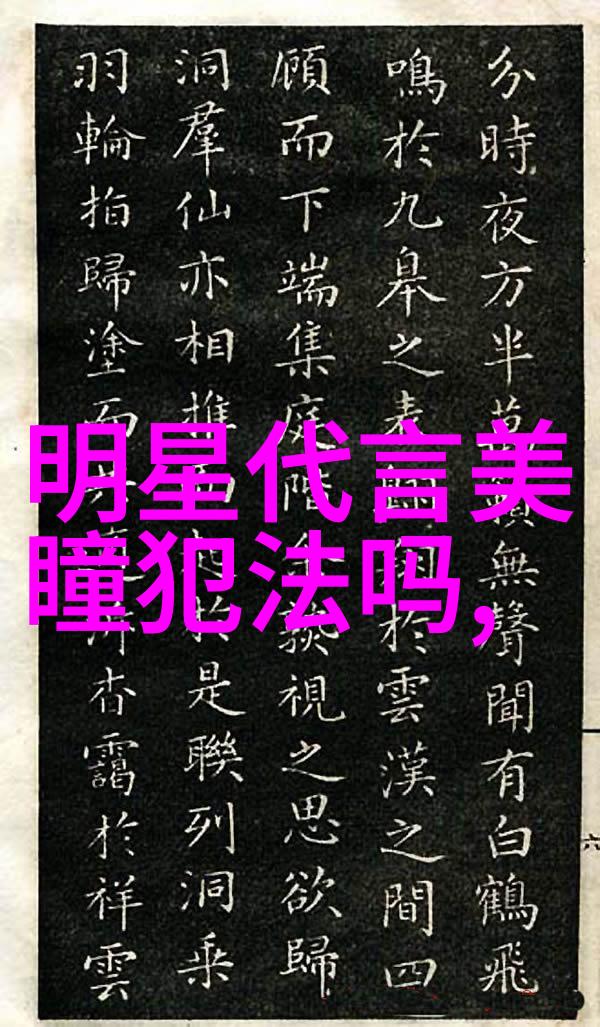 明星代言美
瞳犯法吗,
分時夜方半萬籟無聲聞有白鶴飛
鳴於九皋之表翱翔於雲漢之間四
顧而下端集庭階金談視之思欲歸
洞羣仙亦相推而起於是聯列洞乘
羽輪指歸塗而去杳靄於祥雲
六